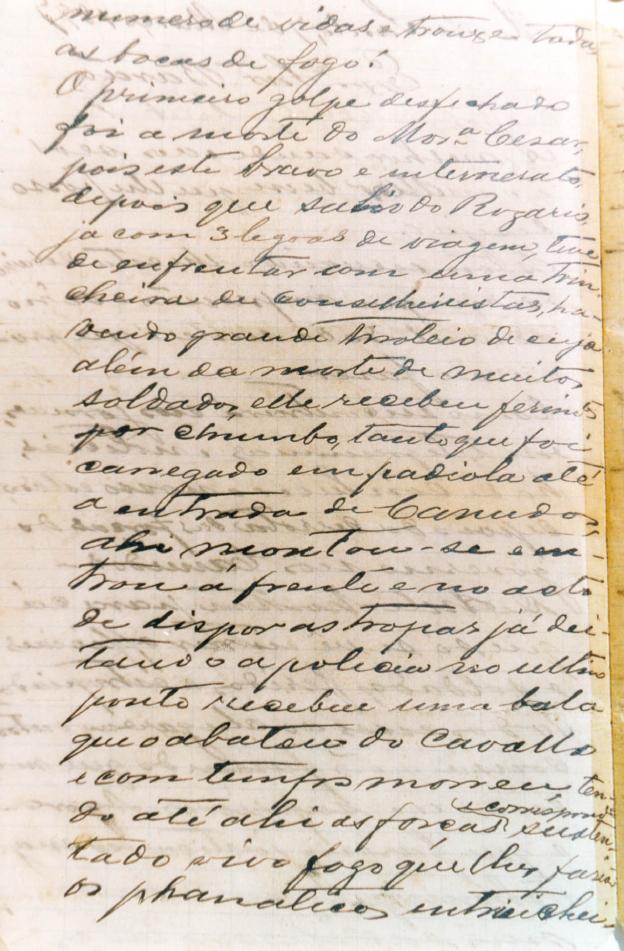 numero de vidas e trouxe todas
as bocas de fogo!
O primeiro golpe desfechado
foi a morte do Mor.ª Cesar,
pois este bravo e intemerato,
depois que sahio do Rozario,
já com 3 legoas de viagem, teve
de enfrentar com uma trin-
cheira de conselheiristas, ha-
vendo grande tiroleio de cuja
além da morte de muitos
soldados, elle recebeu ferimtos
por chumbo, tanto que foi
carregado em padiola até
a entrada de Canudos,
ahi montou-se e en-
trou á frente e no acto
de dispor as tropas já dei-
tando a policia no ultimo
ponto recebeu uma bala
que o abateu do cavallo
e com tempo morreu, ten-
do até ahi as forças susten-
tado vivo fogo que lhes fazia
os phanaticos entrinchei-